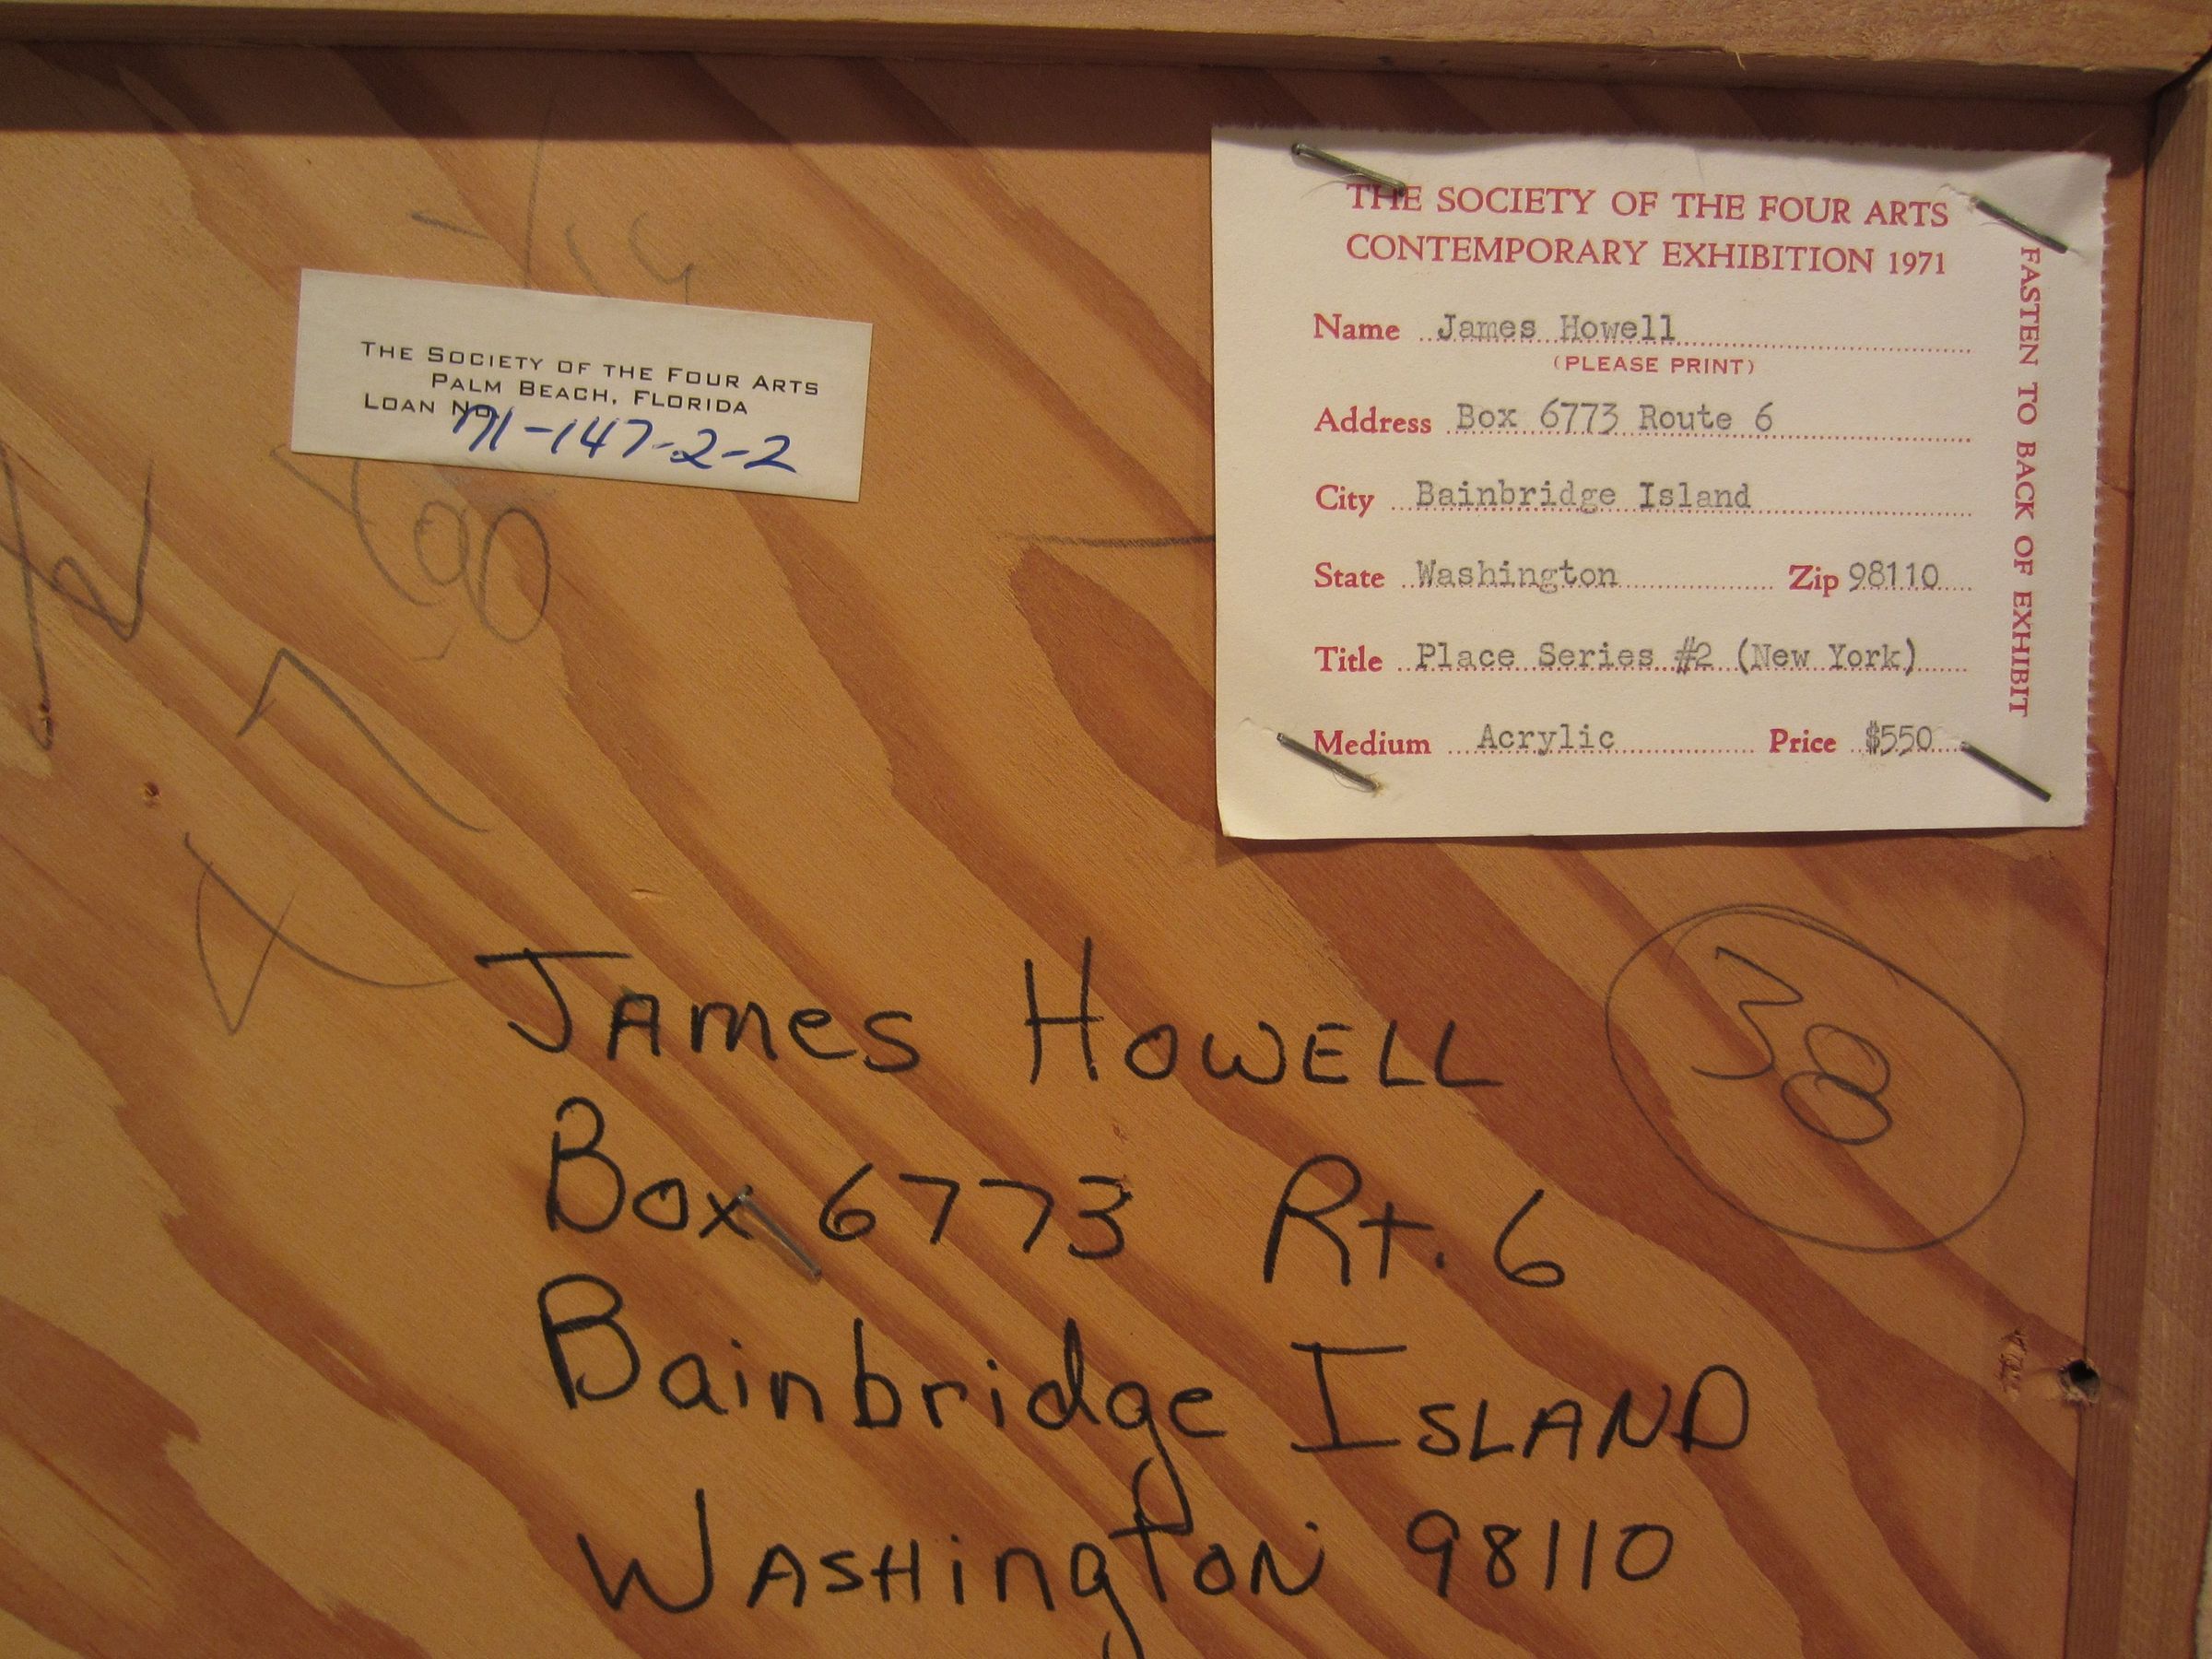 THE SOCIETY OF THE FOUR ARTS
PALM BEACH, FLORIDA
LOAN NO. 71-147-2-2
THE SOCIETY OF THE FOUR ARTS
CONTEMPORARY EXHIBITION 1971
Name James Howell
(PLEASE PRINT)
Address Box 6773 Route 6
City Bainbridge Island
State Washington Zip 98110
Title Place Series #2 (New York)
Medium Acrylic Price $550
FASTEN TO BACK OF EXHIBIT
38
JAmes HOWELL
Box 6773 Rt. 6
Bainbridge ISLAND
WASHingtON 98110